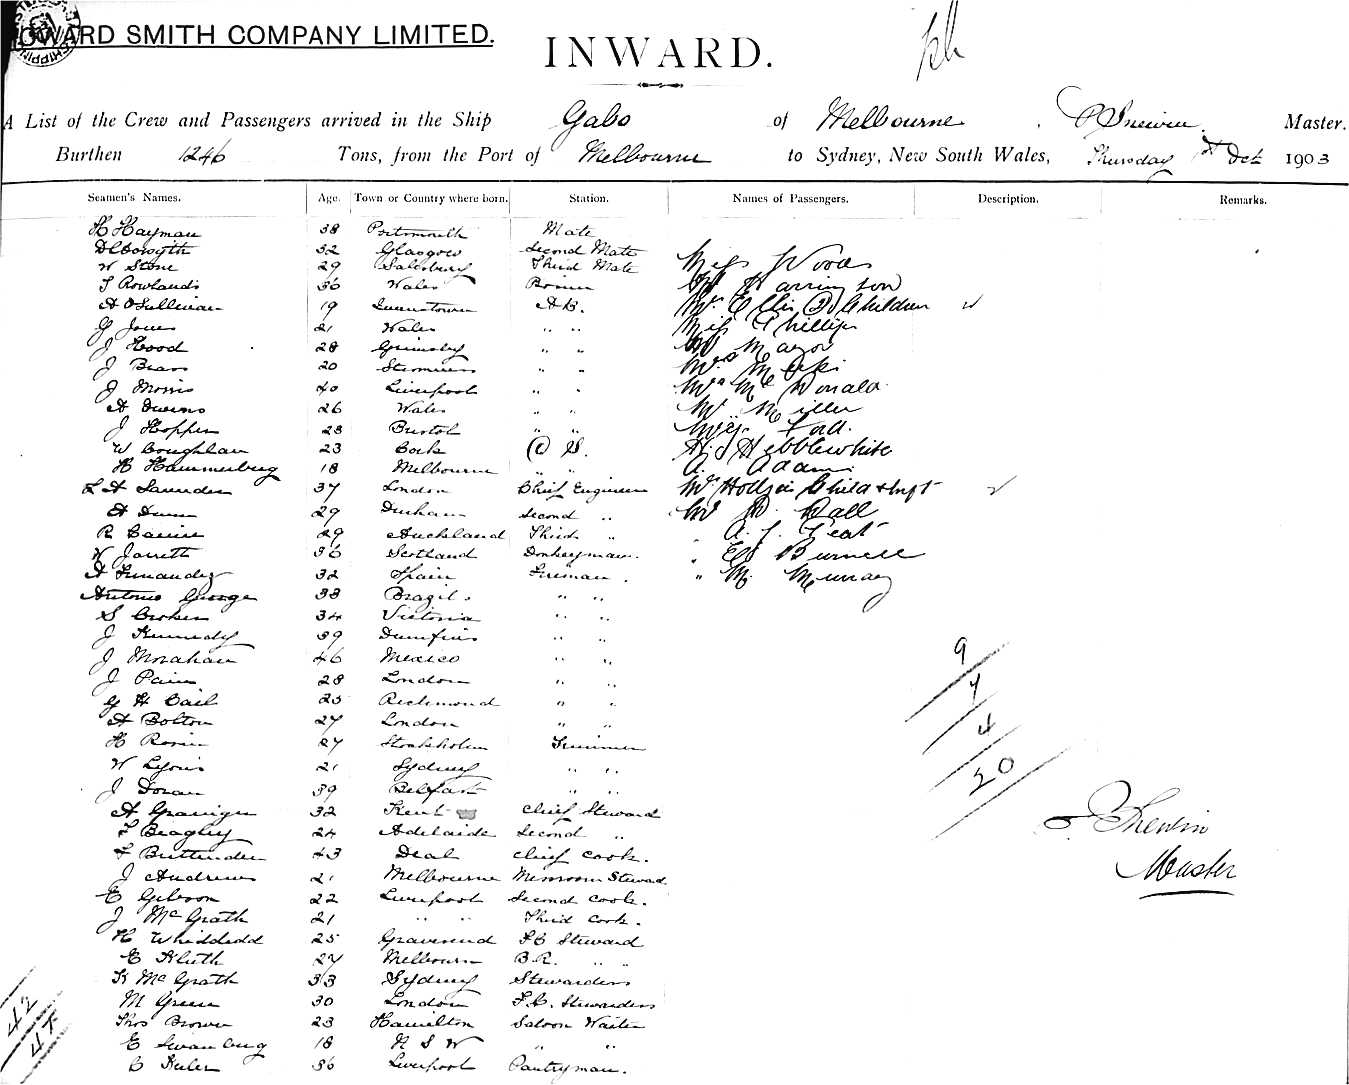 HOWARD SMITH COMPANY LIMITED.
INWARD.
A List of the Crew and Passengers arrived in the Ship Gabo of Melbourne Master.
Burthen 1246 Tons, from the Port of Melbourne to Sydney, New South Wales, Thursday 1st Dec 1903
Seamen's Names. Age. Town or Country where born. Station. Names of Passengers. Description. Remarks.
H Hayman 38 Portsmouth Mate
D C Forsyth 32 Glasgow Second Mate
W Stone 29 Salesbury Third Mate Miss Woods
T Rowlands 36 Wales Bosun Harrington
A O'Sullivan 19 Queenstown AB. Mrs Ellis & Children
G Jones 21 Wales " " Miss Phillips
J Hood 28 Grimsby " " Mayor
J 20 " "
J Morris 40 Liverpool " " Mrs McDonald
A Owens 26 Wales " " Mr Miller
J Hopper 28 Bristol " " Ford
W Coughlan 23 Cork O S. A J Hebblewhite
H Hammerberg 18 Melbourne " " A. Adam
L A Saunders 37 London Chief Engineer Mrs Hodges Child & Inft
A Dunn 29 Durham Second " Wall
R 29 Auckland Third " A. J. Peat
W Jarrett 36 Scotland Donkeyman. " Burnell
A Fernandez 32 Spain Fireman. " M. Murray
Antonio George 33 Brazil. " "
S Croker 34 Victoria " "
J Kennedy 39 Dumfries " "
J Monahan 46 Mexico " "
J Pain 28 London " "
G H Cail 25 Richmond " "
A Bolton 27 London " "
H 27 Stockholm Trimmer
W Lyons 21 Sydney " "
J Doran 39 Belfast " "
A 32 Kent Chief Steward
F Beagley 24 Adelaide Second "
F 43 Deal Chief Cook.
J Andrews 21 Melbourne Messroom Steward
E Gibson 22 Liverpool Second Cook.
J McGrath 21 " " Third Cook.
H 25 Gravesend F C Steward
E 27 Melbourne B.R. " "
K McGrath 33 Sydney Stewardess
M Green 30 London F.C. Stewardess
Thos Brown 23 Hamilton Saloon Waiter
E Swanberg 18 N S W " "
C 36 Liverpool Pantryman.
9
7
4
20
Master
42